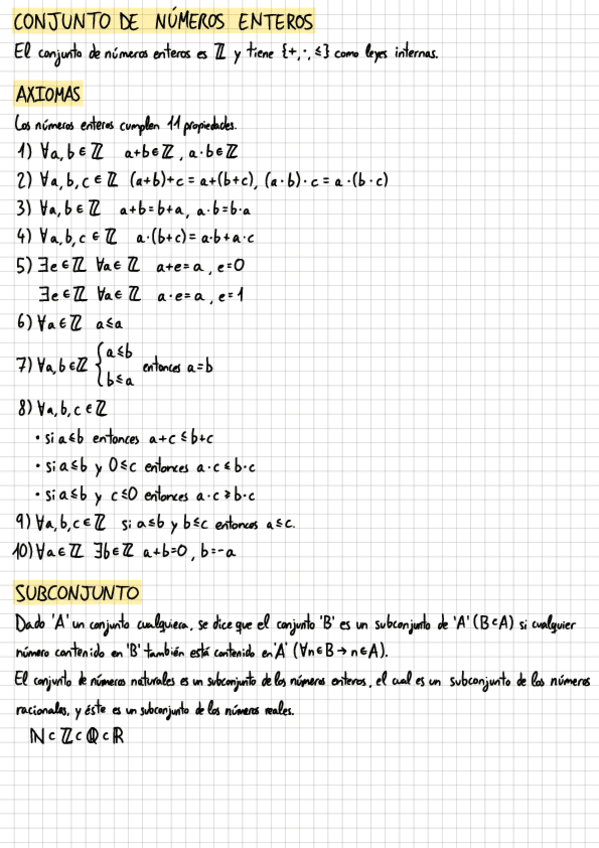 CONJUNTO DE NÚMEROS ENTEROS
El conjunto de números enteros es ℤ y tiene {+,·,≤} como leyes internas.
AXIOMAS
Los números enteros cumplen 11 propiedades.
1) ∀a,b∈ℤ a+b∈ℤ, a·b∈ℤ
2) ∀a,b,c∈ℤ (a+b)+c=a+(b+c), (a·b)·c=a·(b·c)
3) ∀a,b∈ℤ a+b=b+a, a·b=b·a
4) ∀a,b,c∈ℤ a·(b+c)=a·b+a·c
5) ∃e∈ℤ ∀a∈ℤ a+e=a, e=0
∃e∈ℤ ∀a∈ℤ a·e=a, e=1
6) ∀a∈ℤ a≤a
7) ∀a,b∈ℤ { a≤b
b≤a entonces a=b
8) ∀a,b,c∈ℤ
• si a≤b entonces a+c≤b+c
• si a≤b y 0≤c entonces a·c≤b·c
• si a≤b y c≤0 entonces a·c≥b·c
9) ∀a,b,c∈ℤ si a≤b y b≤c entonces a≤c.
10) ∀a∈ℤ ∃b∈ℤ a+b=0, b=-a
SUBCONJUNTO
Dado 'A' un conjunto cualquiera, se dice que el conjunto 'B' es un subconjunto de 'A' (B⊂A) si cualquier
número contenido en 'B' también está contenido en 'A' (∀n∈B→n∈A).
El conjunto de números naturales es un subconjunto de los números enteros, el cual es un subconjunto de los números
racionales, y éste es un subconjunto de los números reales.
ℕ⊂ℤ⊂ℚ⊂ℝ